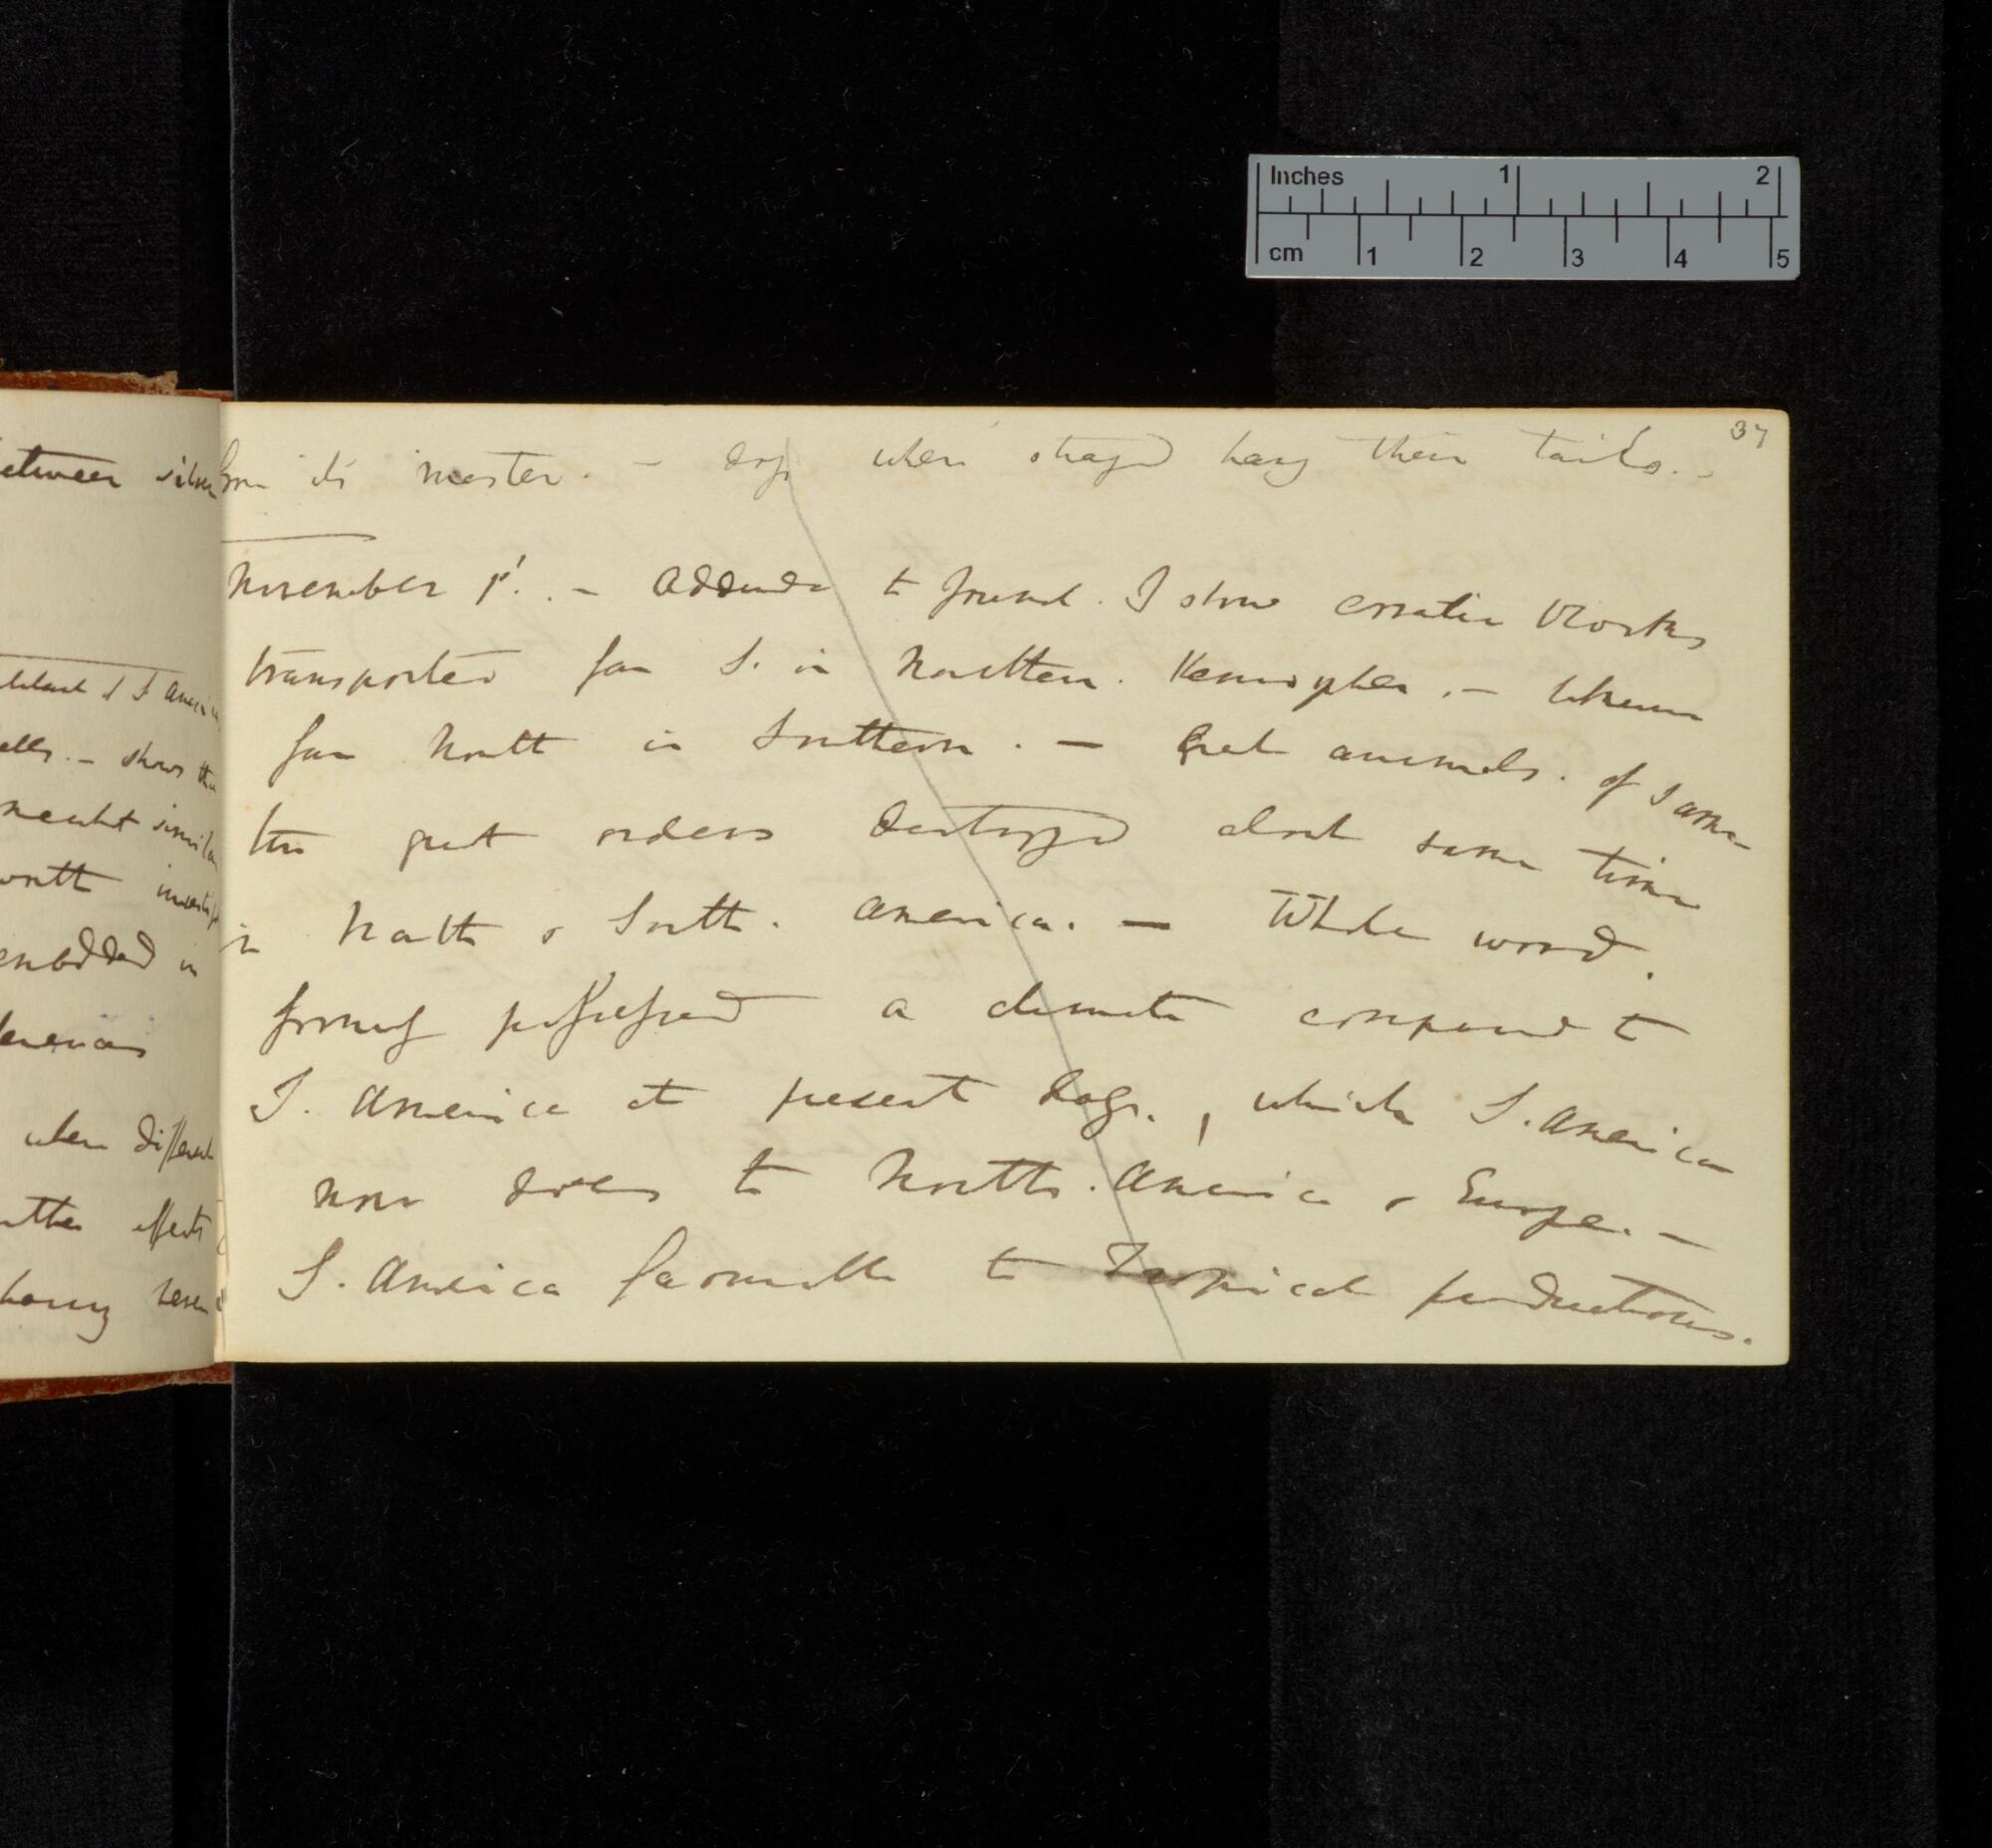 etween silver
I America
ells. — shows the
similar
worth
embedded in
when different
other effects
having been
37
from its master. — dogs when strayed hang their tails. —
November 1st. — Addenda to Journal. I show erratic blocks
transported far S. in Northern. Hemispher. — likewise
far North in Southern. — Great animals. of same
two great orders destroyed about same time
in North & South. America. — Whole world.
formerly possessed a climate compared to
S. America at present day., which S. America
now does to North. America & Europe. —
S. America favourable to Tropical productions.
Inches 1 2
cm 1 2 3 4 5